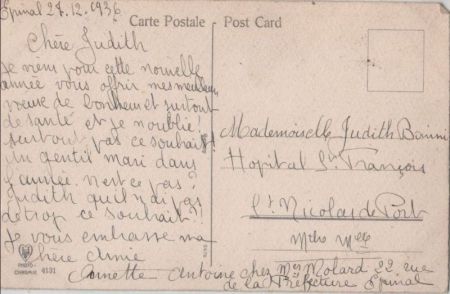 Epinal 27.12.1936
Carte Postale - Post Card
Chère Judith
Je viens pour cette nouvelle
année vous offrir mes meilleurs
vœux de bonheur et surtout
de santé et je n'oublie!
surtout pas ce souhait
un gentil mari dans
l'année. n'est ce pas?
Judith qu'il n'ai pas
de trop ce souhait?!
Je vous embrasse ma
chère Amie
Annette Antoine chez Molard 22 rue
de la Préfecture Epinal
Mademoiselle Judith Bonni
Hopital St François
St Nicolas de Port
Mthe Mlle
PHOTO
4131